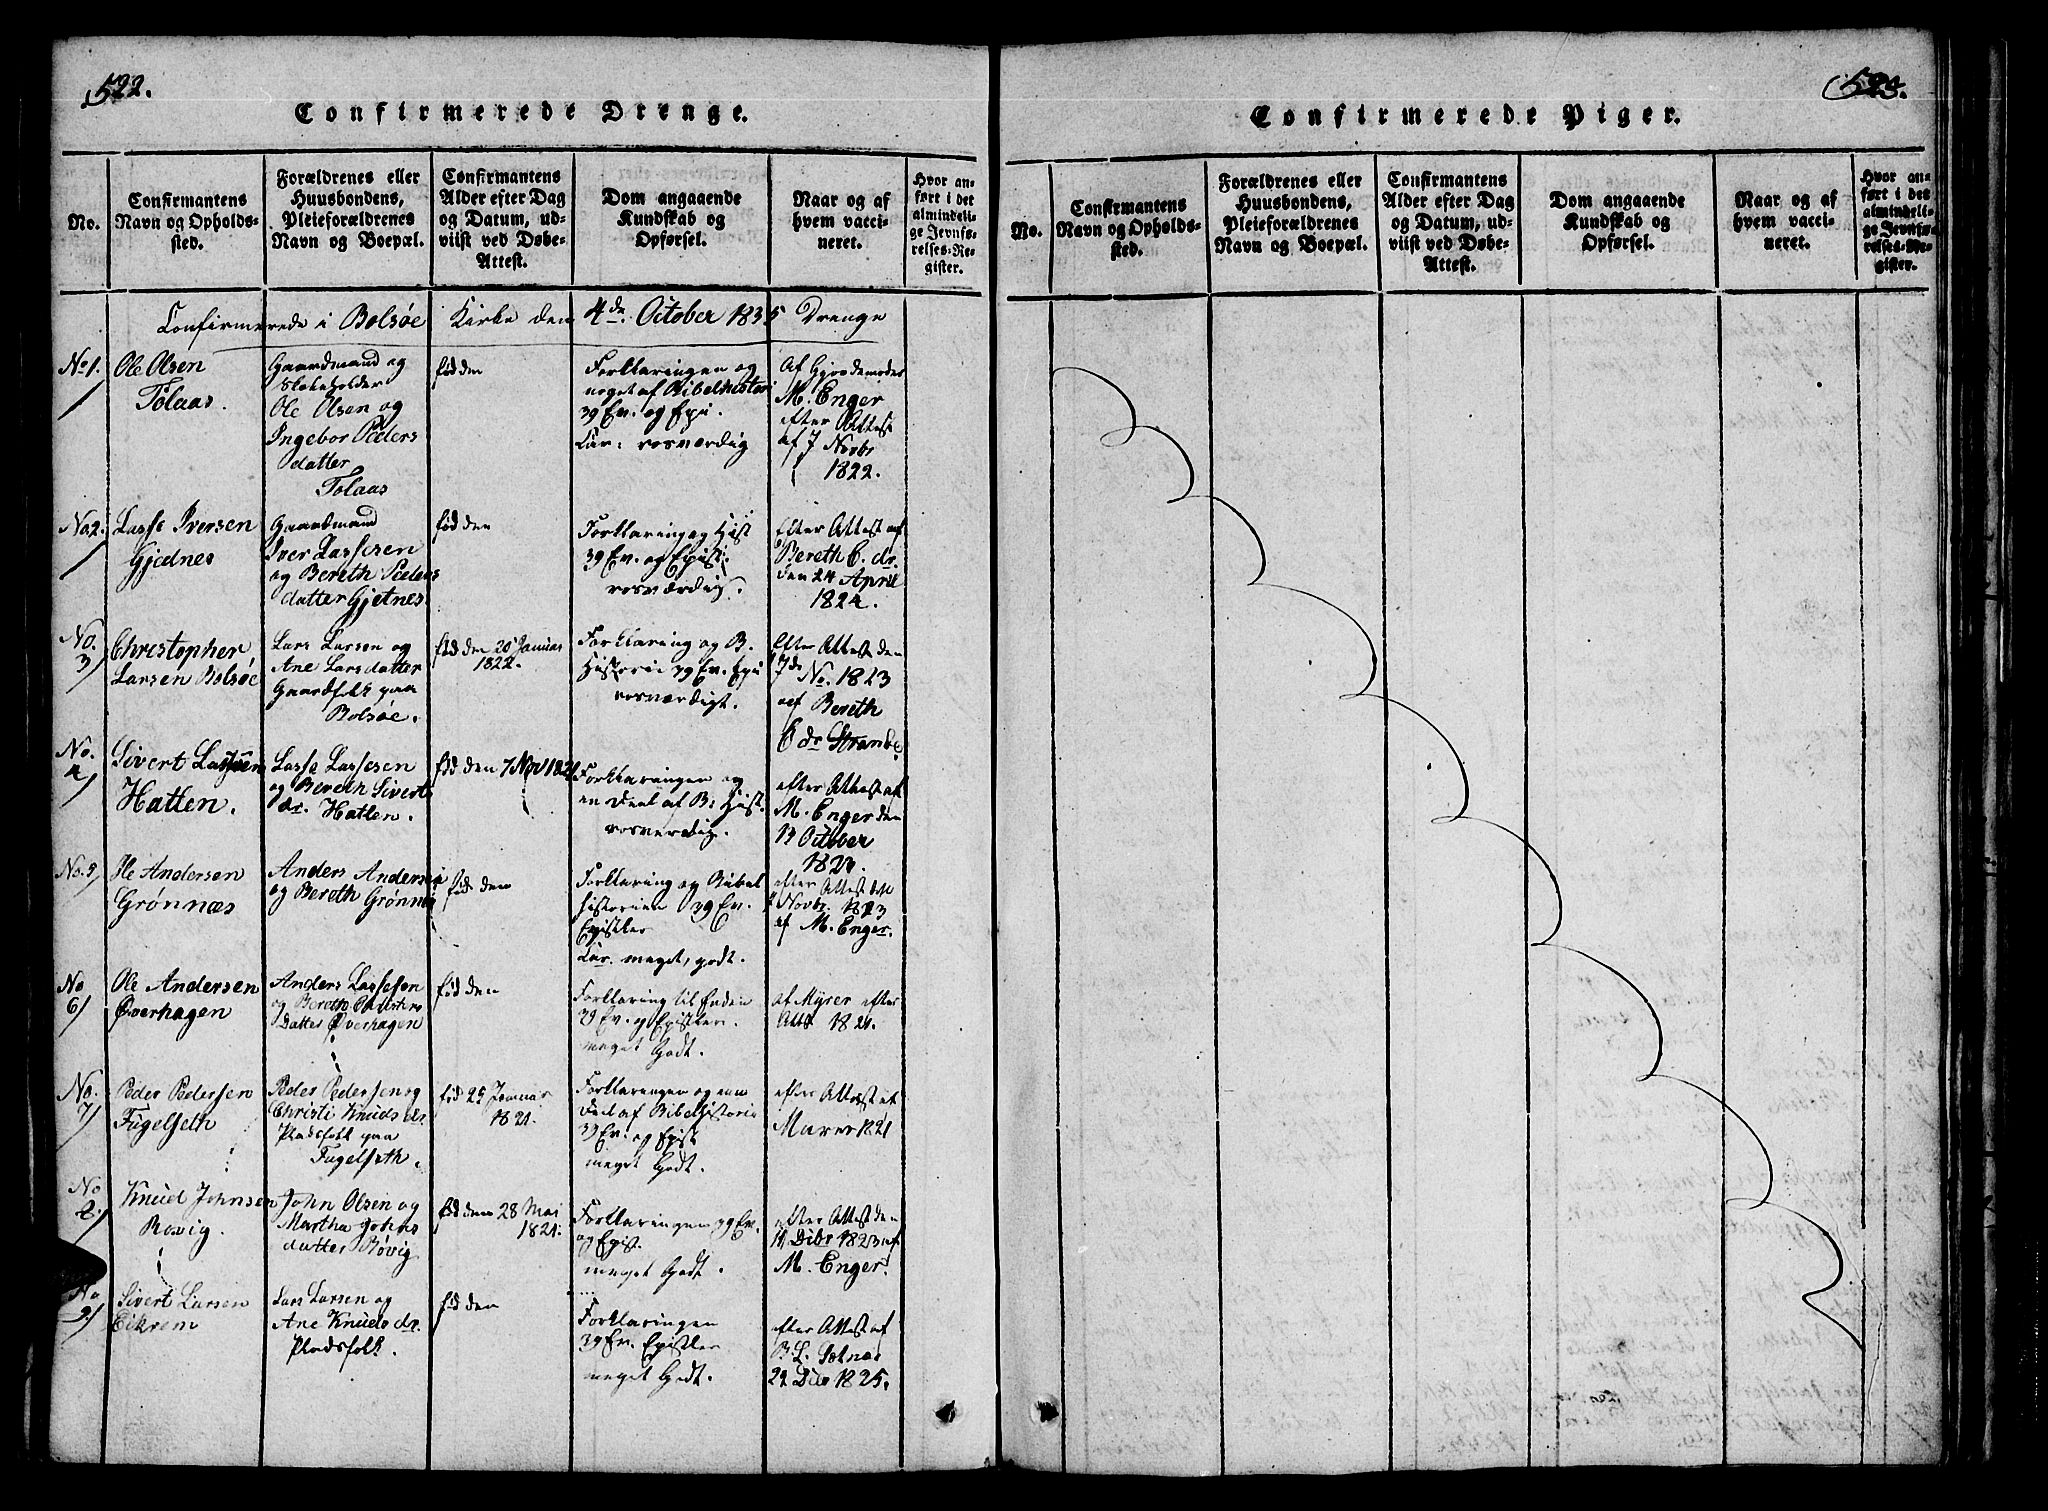 522.
Confirmerede Drenge.
No.
Confirmantens
Navn og Opholds-
sted.
Forældrenes eller
Huusbondens,
Pleieforældrenes
Navn og Boepæl.
Confirmantens
Alder efter Dag
og Datum, ud-
viist ved Døbe-
Attest.
Dom angaaende
Kundskab og
Opførsel.
Naar og af
hvem vacci-
neret.
Hvor an-
ført i det
almindeli-
ge Jevnfø-
relses-Re-
gister.
Confirmerede i Bolsøe Kirke den 4de October 1835 Drenge
No 1.
Ole Olsen
Tolaas.
Gaardmand og
Ole Olsen og
Ingebor Peders
datter
Tolaas
fød den
Forklaringen og
noget af Bibelhistori
39 Ev. og Epi.
rosværdig
Af
M. Enger
efter Attest
af 7 Novbr
1822.
No 2.
Lasse Iversen
Gjednes
Gaardmand
Iver Lassesen
og Bereth Peders
datter Gjetnes.
fød den
Forklaring og Hist
39 Ev. og Epist:
rosværdig.
Efter Attest af
Bereth C. dr.
den 24 April
1824.
No.
3/
Christopher
Larsen Bolsøe
Lars Larsen og
Ane Larsdatter
Gaardfolk paa
Bolsøe.
fød den 20 Januar
1822.
Forklaring og B.
Historie 39 Ev. Epi
rosværdigt.
Efter Attest den
7de No. 1823
af Bereth
C dr Strande
No.
4/
Sivert Lassesen
Hatten.
Lasse Lassesen
og Bereth Siverts
dr. Hatten.
fød den 7 Nov 1821
Forklaringen og
en Deel af B: Hist.
rosverdig.
efter Attest af
M. Enger den
13 October
No. 5/
Ole Andersen
Grønnæs
Anders Andersen
og Bereth Grønnes
fød den
Forklaring og Bibel
historien 39 Ev.
Epistler
Kar. meget godt.
efter Attest
Novbr. 1823
af M. Enger.
No
6/
Ole Andersen
Øverhagen
Anders Lassesen
og Bereth
Datter Øverhagen
fød den
Forklaring til Enden
39 Ev. og Epistler.
meget Godt.
af Myrer efter
Att 1821.
No.
7/
Peder Pedersen
Fugelseth
Peder Pedersen og
Christi Knuds dr.
Pladsfolk paa
Fugelseth.
fød 25 Januar
1821.
Forklaringen og een
Deel af Bibelhistorie
39 Ev. og Epist
meget Godt.
efter Attest af
1821
No
Knud Johnsen
Røvig.
John Olsen og
Martha Johns
datter Røvig
fød den 28 Mai
1821.
Forklaringen 39 Ev.
og Epist.
meget Godt.
efter Attest den
11 Dcbr 1823 af
M. Enger.
No
9/
Sivert Larsen
Eikrem
Lars Larsen og
Ane Knuds dr.
Pladsfolk.
fød den
Forklaringen
39 Ev. Epistler
meget Godt.
efter Attest af
B. L. Sotnæs
22 Dcbr 1825.
523.
Confirmerede Piger.
No.
Confirmantens
Navn og Opholds-
sted.
Forældrenes eller
Huusbondens,
Pleieforældrenes
Navn og Boepæl.
Confirmantens
Alder efter Dag
og Datum, ud-
viist ved Døbe-
Attest.
Dom angaaende
Kundskab og
Opførsel.
Naar og af
hvem vacci-
neret.
Hvor an-
ført i det
almindeli-
ge Jevnfø-
relses-Re-
gister.